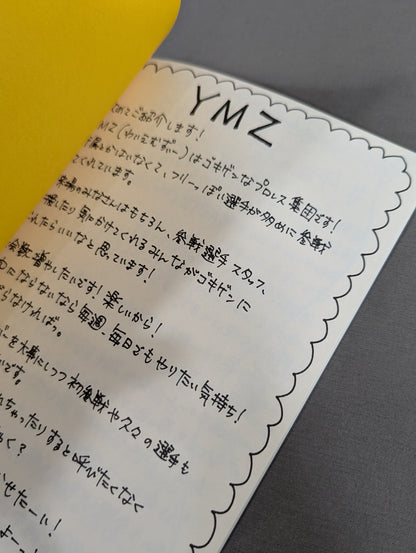 YMZ
めてご紹介します！
MZ（わいえむずぃー）はゴキゲンなプロレス集団です！
とかはいなくて、フリーっぽい選手が多めに参戦
てくれています。
来場のみなさんはもちろん、参戦選手、スタッフ、
したり気にかけてくれるみんながゴキゲンに
れたらいいなと思っています！
会戦増やしたいです！楽しいから！
にならないなら毎週、毎日でもやりたい気持ち！
らなければ。
を大事にしつつ初参戦や久々の選手も
いです。
れちゃったりすると呼びたくなく
く？
せたーい！
よーっ